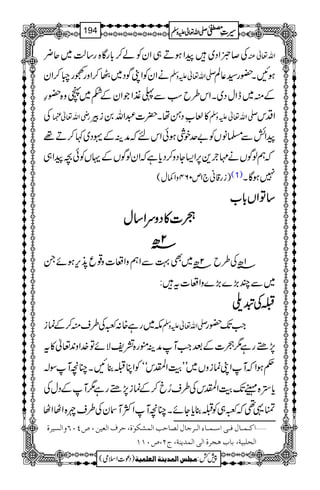 سیرتِ مصطفیٰ صلی اللہ تعالیٰ علیہ وسلم 194
اللہ تعالیٰ عنہ کی ایک صاحبزادی ہیں پیدا ہوتے ہی ان کو لے کر بارگاہِ رسالت میں حاضر
ہوئیں۔ حضور سید عالم صلی اللہ تعالیٰ علیہ وسلم نے ان کو اپنی گود میں اٹھا کر اور کھجور چبا کر ان
کے منہ میں ڈال دی۔ اس طرح سب سے پہلی غذا جو ان کے شکم میں پہنچی وہ حضور
اقدس صلی اللہ تعالیٰ علیہ وسلم کا لعاب دہن تھا۔ حضرت عبداللہ بن زبیر رضی اللہ تعالیٰ عنہما کی
پیدائش سے مسلمانوں کو بے حد خوشی ہوئی اس لئے کہ مدینہ کے یہودی کہا کرتے تھے
کہ ہم لوگوں نے مہاجرین پر ایسا جادو کر دیا ہے کہ ان لوگوں کے یہاں کوئی بچہ پیدا ہی
نہیں ہوگا۔ (1) (زرقانی ج۱ ص۴۶۰ و اکمال)
ساتواں باب
ہجرت کا دوسرا سال
۲ھ
۱ھ کی طرح ۲ھ میں بھی بہت سے اہم واقعات وقوع پذیر ہوئے جن
میں سے چند بڑے بڑے واقعات یہ ہیں:
قبلہ کی تبدیلی
جب تک حضور صلی اللہ تعالیٰ علیہ وسلم مکہ میں رہے خانہ کعبہ کی طرف منہ کر کے نماز
پڑھتے رہے مگر ہجرت کے بعد جب آپ مدینہ منورہ تشریف لائے تو خداوند تعالیٰ کا یہ
حکم ہوا کہ آپ اپنی نمازوں میں ”بیت المقدس“ کو اپنا قبلہ بنائیں۔ چنانچہ آپ سولہ
یا سترہ مہینے تک بیت المقدس کی طرف رُخ کر کے نماز پڑھتے رہے مگر آپ کے دل کی
تمنا یہی تھی کہ کعبہ ہی کو قبلہ بنایا جائے۔ چنانچہ آپ اکثر آسمان کی طرف چہرہ اٹھا اٹھا
......اکمال فی اسماء الرجال لصاحب المشکوٰۃ، حرف العین، ص۶۰۴ والسیرۃ
الحلبیۃ، باب ھجرۃ الی المدینۃ، ج۲، ص۱۱۰
پیش کش: مجلس المدینۃ العلمیۃ (دعوتِ اسلامی)